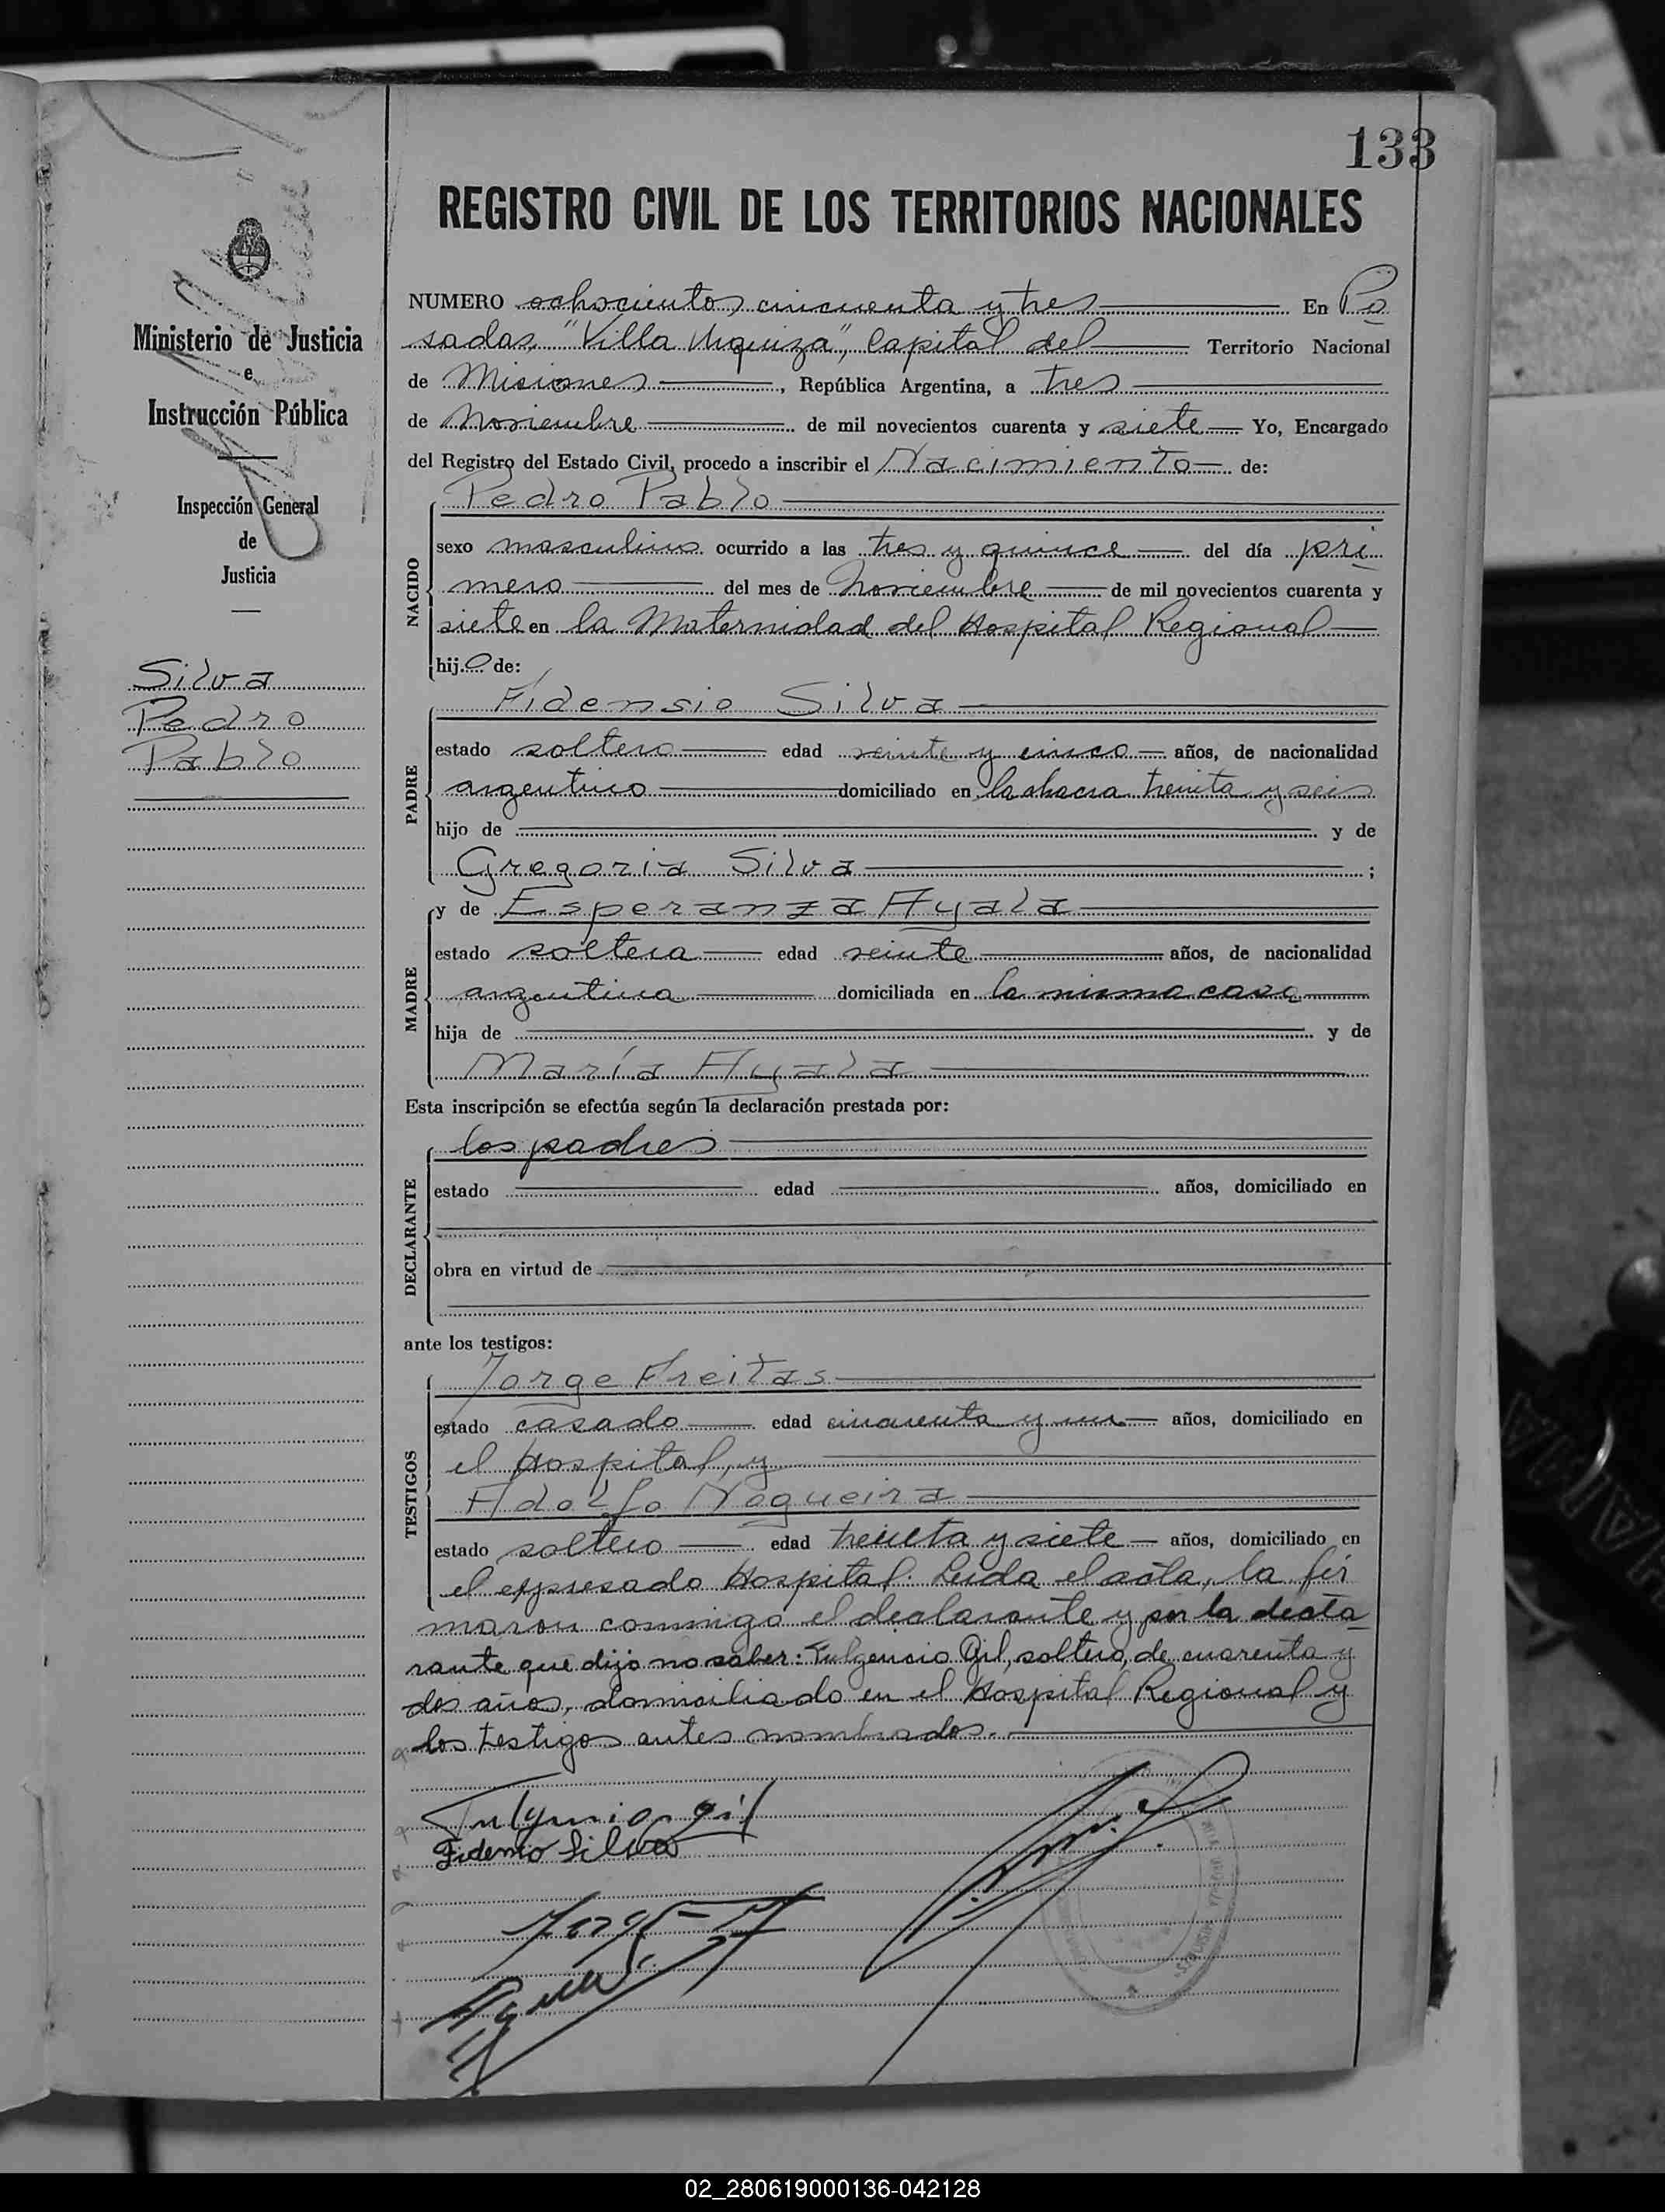 133
REGISTRO CIVIL DE LOS TERRITORIOS NACIONALES
Ministerio de Justicia
e
Instrucción Pública
Inspección General
de
Justicia
Silva
Pedro
Pablo
NUMERO ochocientos cincuenta y tres En Po
sadas, "Villa Urquiza", Capital del Territorio Nacional
de Misiones, República Argentina, a tres
de Noviembre de mil novecientos cuarenta y siete Yo, Encargado
del Registro del Estado Civil, procedo a inscribir el Nacimiento de:
NACIDO
Pedro Pablo
sexo masculino ocurrido a las tres y quince del día pri
mero del mes de Noviembre de mil novecientos cuarenta y
siete en la Maternidad del Hospital Regional
hijo de:
PADRE
Fidensio Silva
estado soltero edad veinte y cinco años, de nacionalidad
argentino domiciliado en la chacra treinta y seis
hijo de y de
Gregoria Silva ;
MADRE
y de Esperanza Ayala
estado soltera edad veinte años, de nacionalidad
argentina domiciliada en la misma casa
hija de y de
María Ayala
Esta inscripción se efectúa según la declaración prestada por:
DECLARANTE
los padres
estado edad años, domiciliado en
obra en virtud de
ante los testigos:
TESTIGOS
Jorge Freitas
estado casado edad cincuenta y un años, domiciliado en
el Hospital, y
Adolfo Nogueira
estado soltero edad treinta y siete años, domiciliado en
el expresado Hospital. Leída el acta, la fir
maron conmigo el declarante y por la decla-
rante que dijo no saber: Fulgencio Gil, soltero, de cuarenta y
dos años, domiciliado en el Hospital Regional y
los testigos antes nombrados.
Fulgencio Gil
Fidensio Silva
02_280619000136-042128